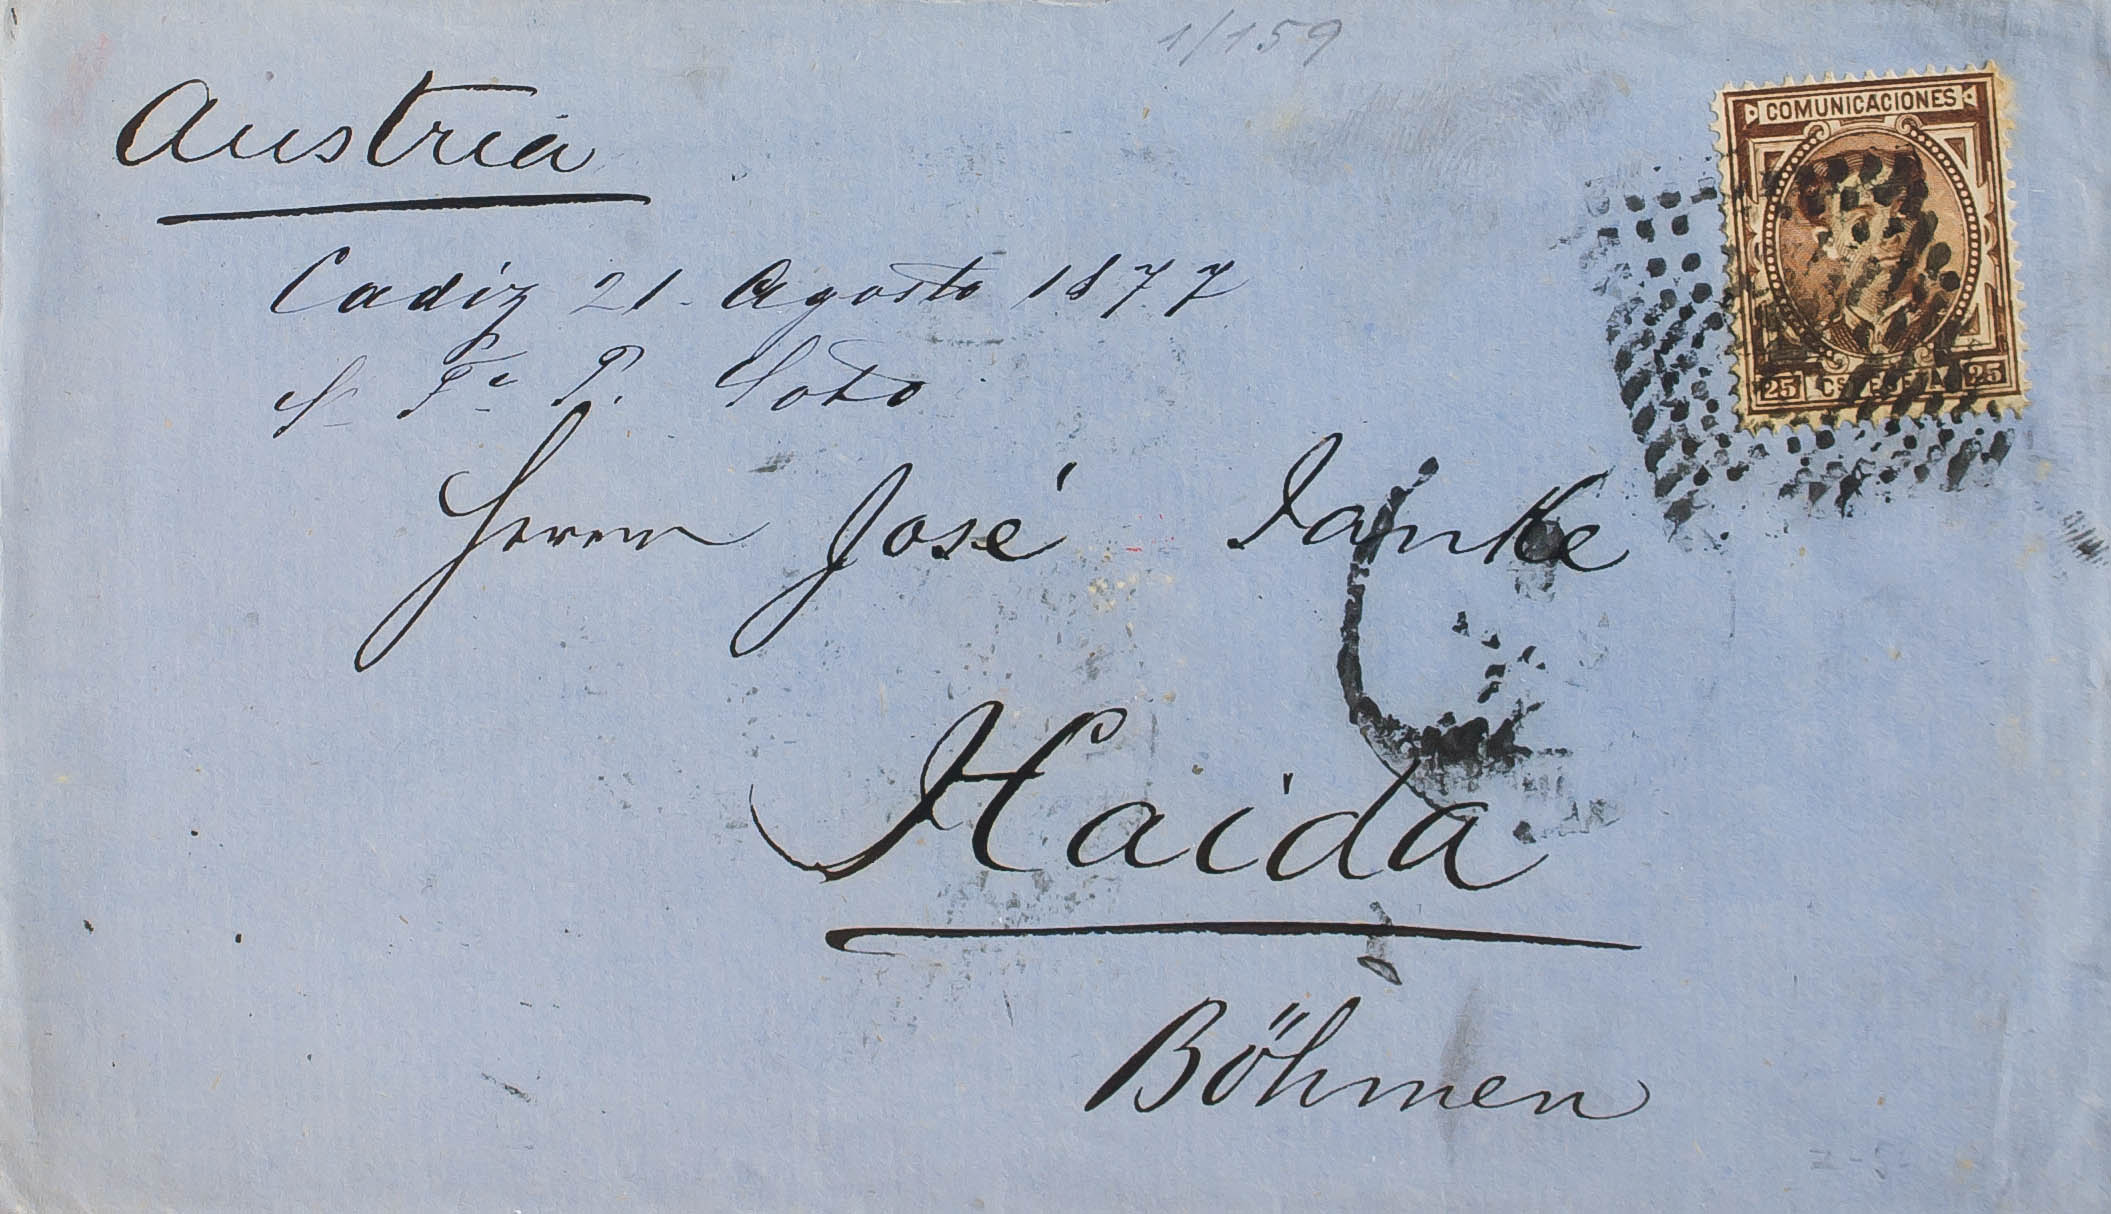 1/159
Austria
COMUNICACIONES
25 Cs PESETA 25
Cadiz 21 Agosto 1877
P. Soto
Herrn José Janke
Haida
Böhmen